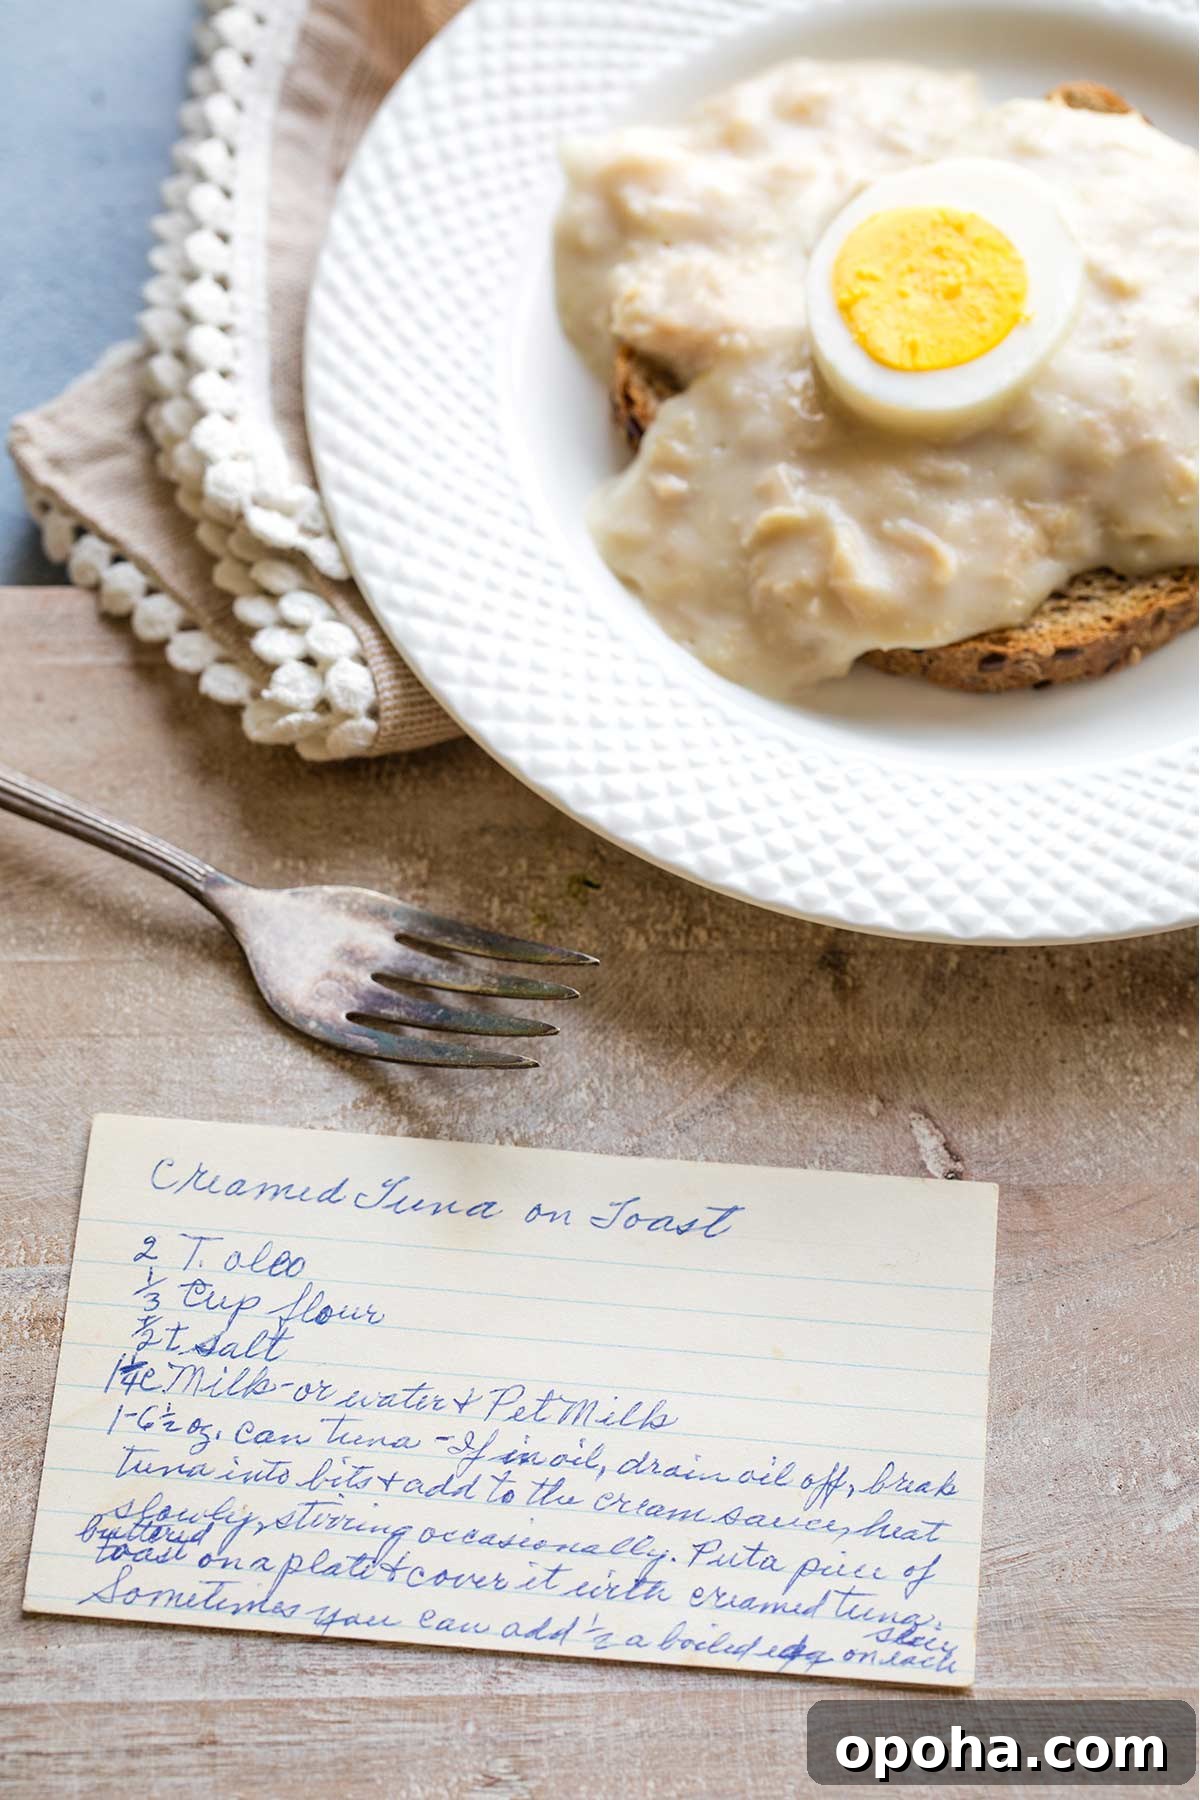 Creamed Tuna on Toast
2 T. oleo
1/3 Cup flour
1/2 t salt
1 1/4 c Milk - or water & Pet Milk
1 - 6 1/2 oz. can tuna - If in oil, drain oil off, break
tuna into bits & add to the cream sauce, heat
slowly, stirring occasionally. Put a piece of
buttered
toast on a plate & cover it with creamed tuna.
Sometimes you can add 1/2 a boiled egg on each
opoha.com